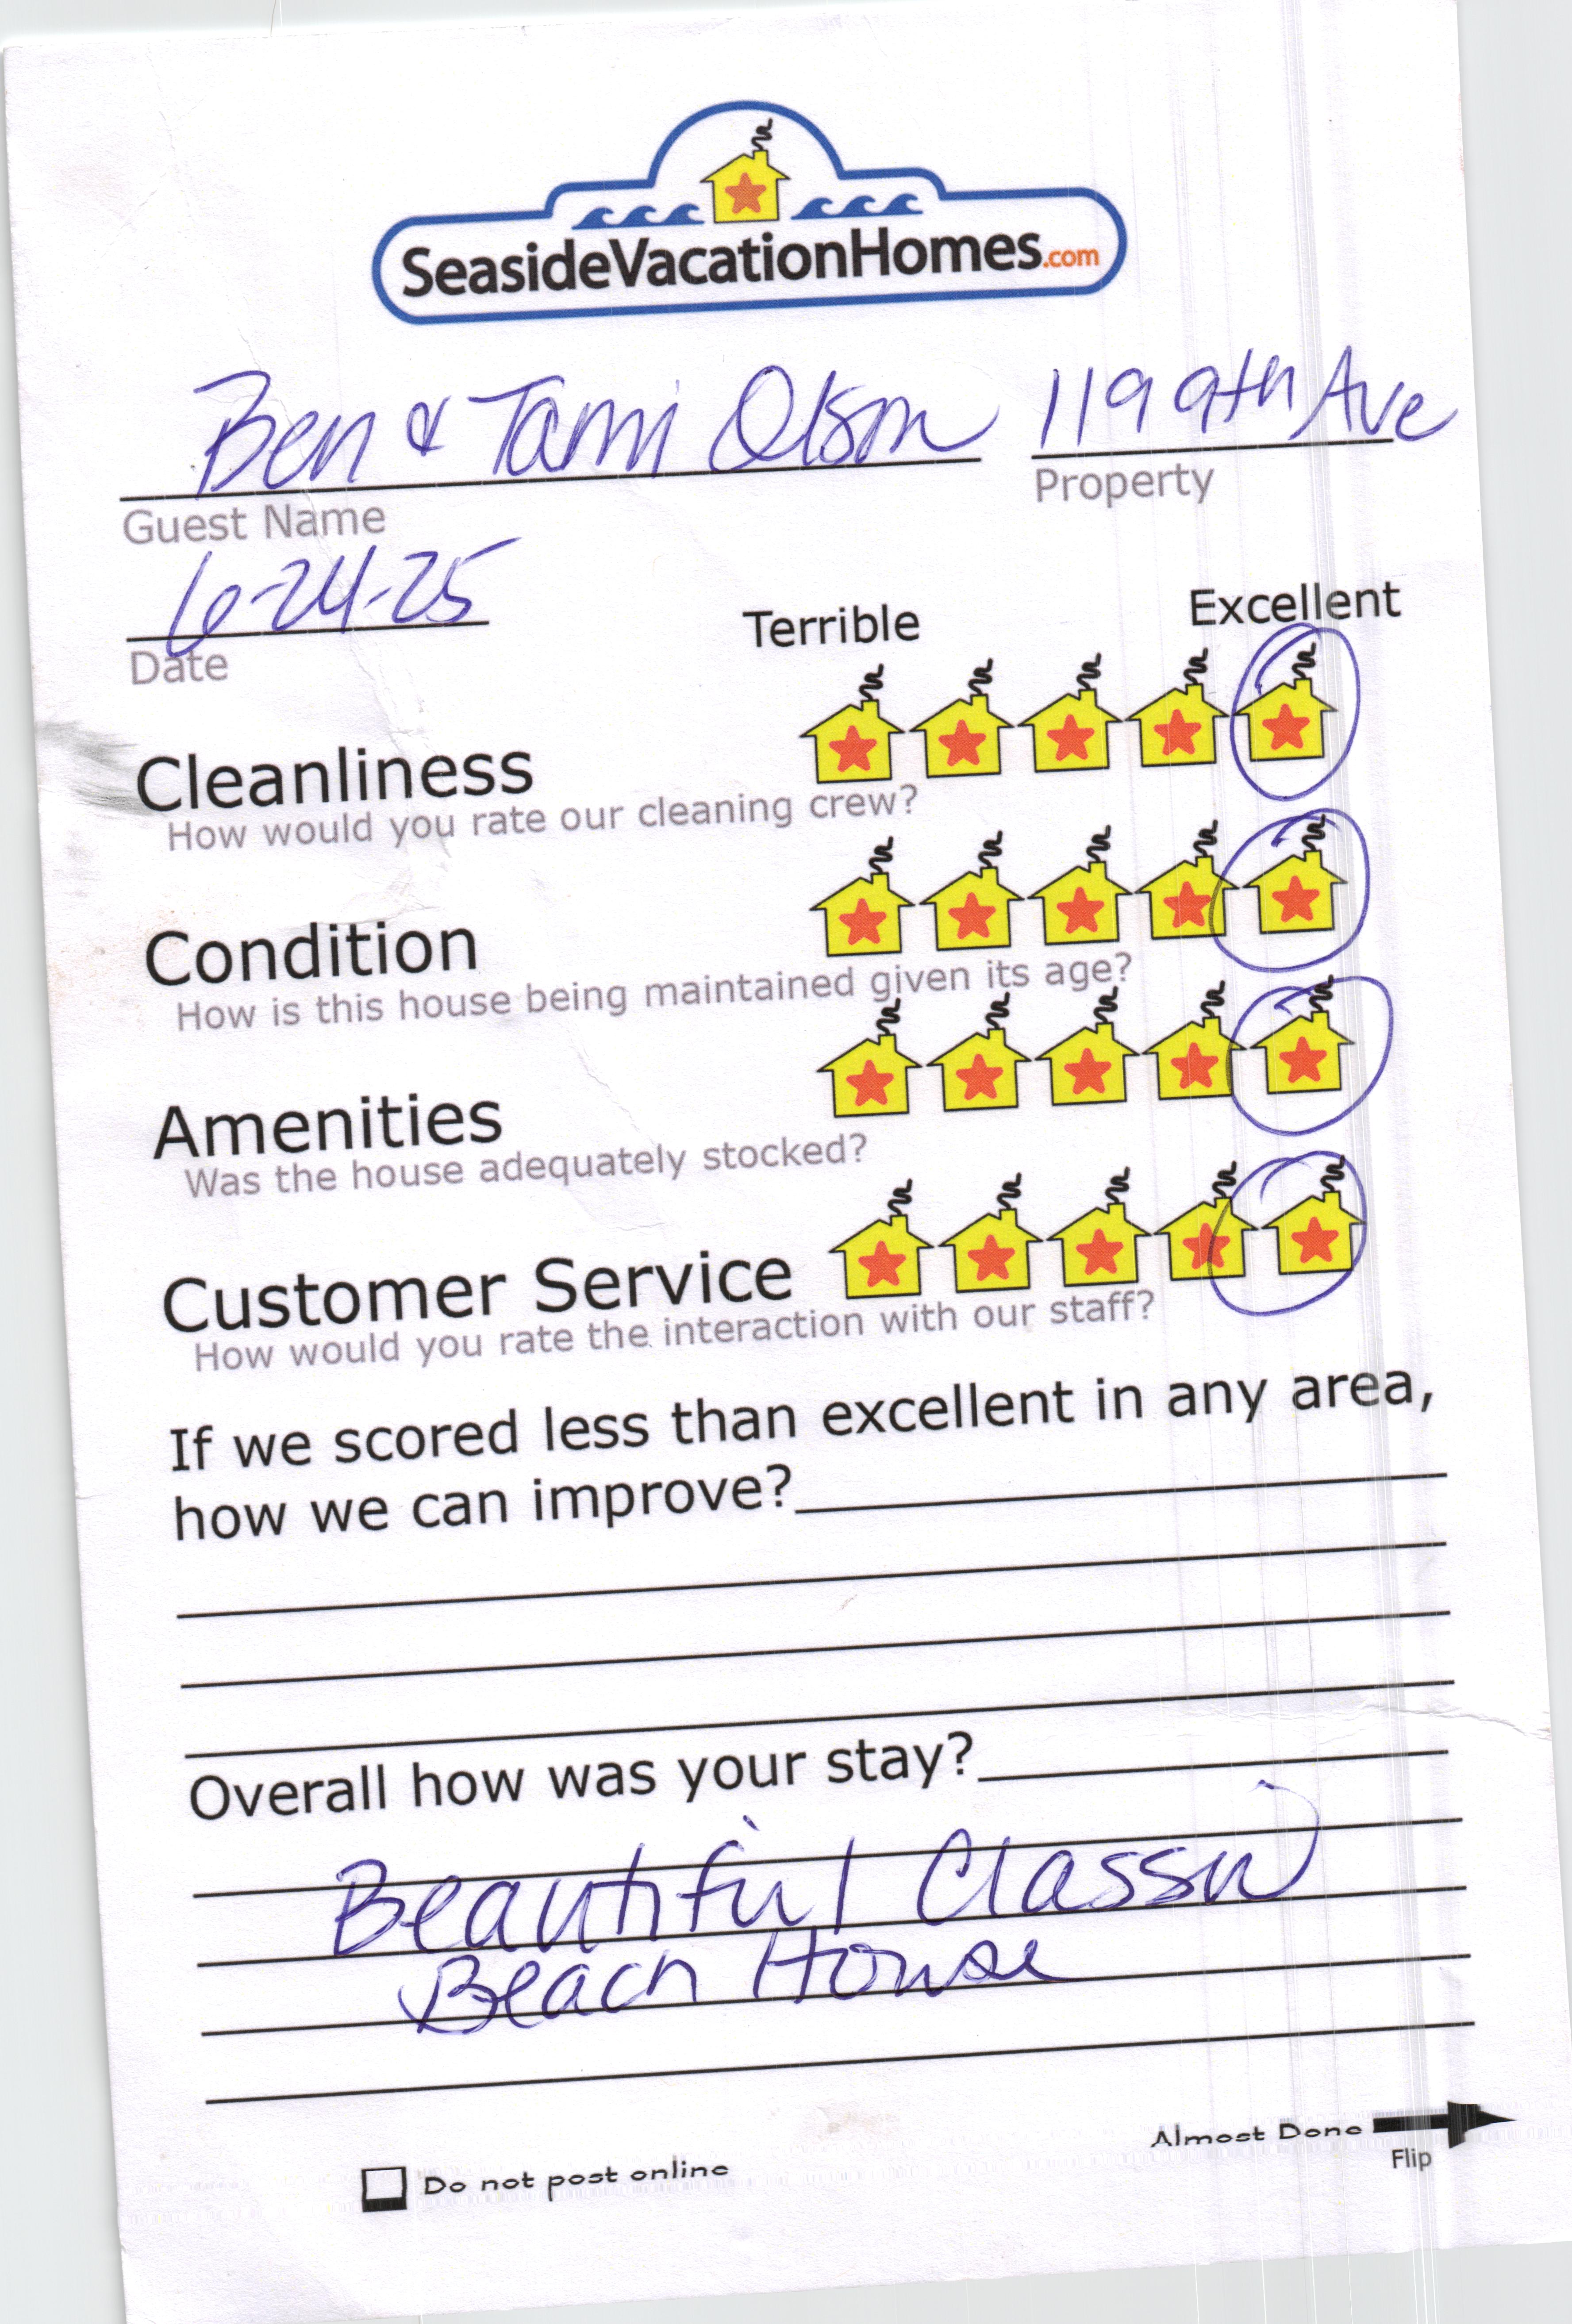 SeasideVacationHomes.com
Ben & Tami Olson 119 9th Ave
Guest Name Property
6-24-25
Date
Terrible Excellent
Cleanliness
How would you rate our cleaning crew?
Condition
How is this house being maintained given its age?
Amenities
Was the house adequately stocked?
Customer Service
How would you rate the interaction with our staff?
If we scored less than excellent in any area,
how we can improve?
Overall how was your stay?
Beautiful
Beach House
Almost Done
Flip
Do not post online